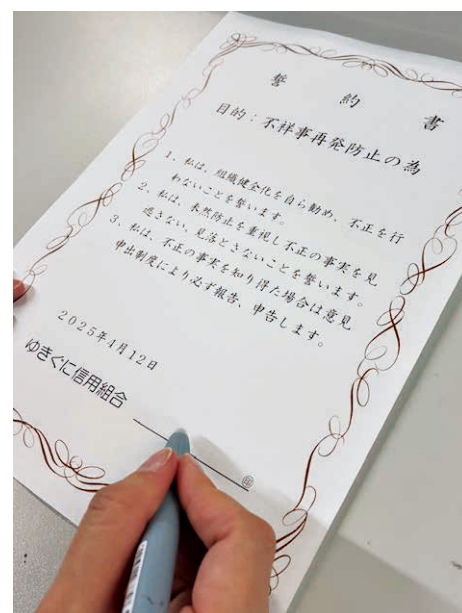 誓約書
目的：不祥事再発防止の為
1、私は、組織健全化を自ら勧め、不正を行
わないことを誓います。
2、私は、未然防止を重視し不正の事実を見
逃さない、見落とさないことを誓います。
3、私は、不正の事実を知り得た場合は意見
申出制度により必ず報告、申告します。
2025年4月12日
ゆきぐに信用組合
印